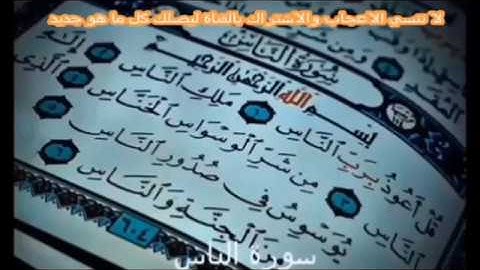 لا تنسي الاعجاب والاشتراك بالقناة ليصلك كل ما هو جديد
العقد ومن
سُورَةُ النَّاسِ
بِسْمِ اللَّهِ الرَّحْمَٰنِ الرَّحِيمِ
قُلْ أَعُوذُ بِرَبِّ النَّاسِ ١ مَلِكِ النَّاسِ ٢ إِلَٰهِ
النَّاسِ ٣ مِن شَرِّ الْوَسْوَاسِ الْخَنَّاسِ ٤ الَّذِي
يُوَسْوِسُ فِي صُدُورِ النَّاسِ ٥
الْجِنَّةِ وَالنَّاسِ ٦
٦٠٤
سورة الناس